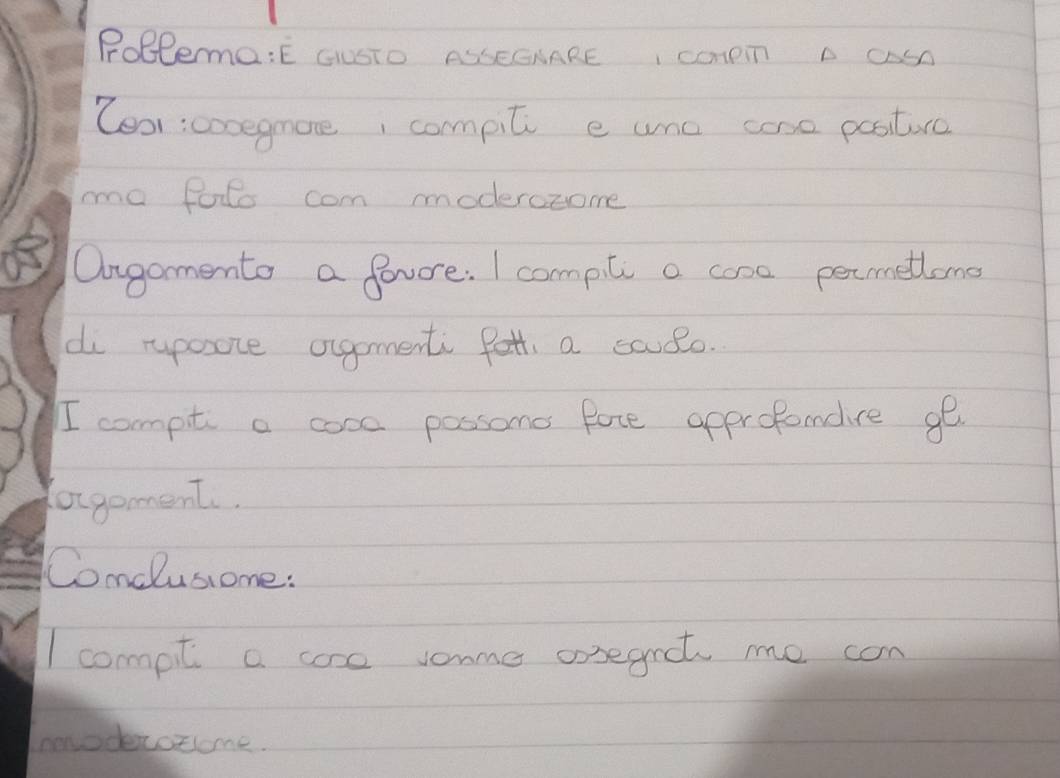 Problema: È GIUSTO ASSEGNARE I COMPITI A CASA
Tesi: assegnare i compiti e una cosa positiva
ma farlo con moderazione
Argomento a favore: I compiti a casa permettono
di riposare argomenti fatti a scuola.
I compiti a casa possono fare approfondire gli
argomenti.
Conclusione:
I compiti a casa vanno assegnati ma con
moderazione.